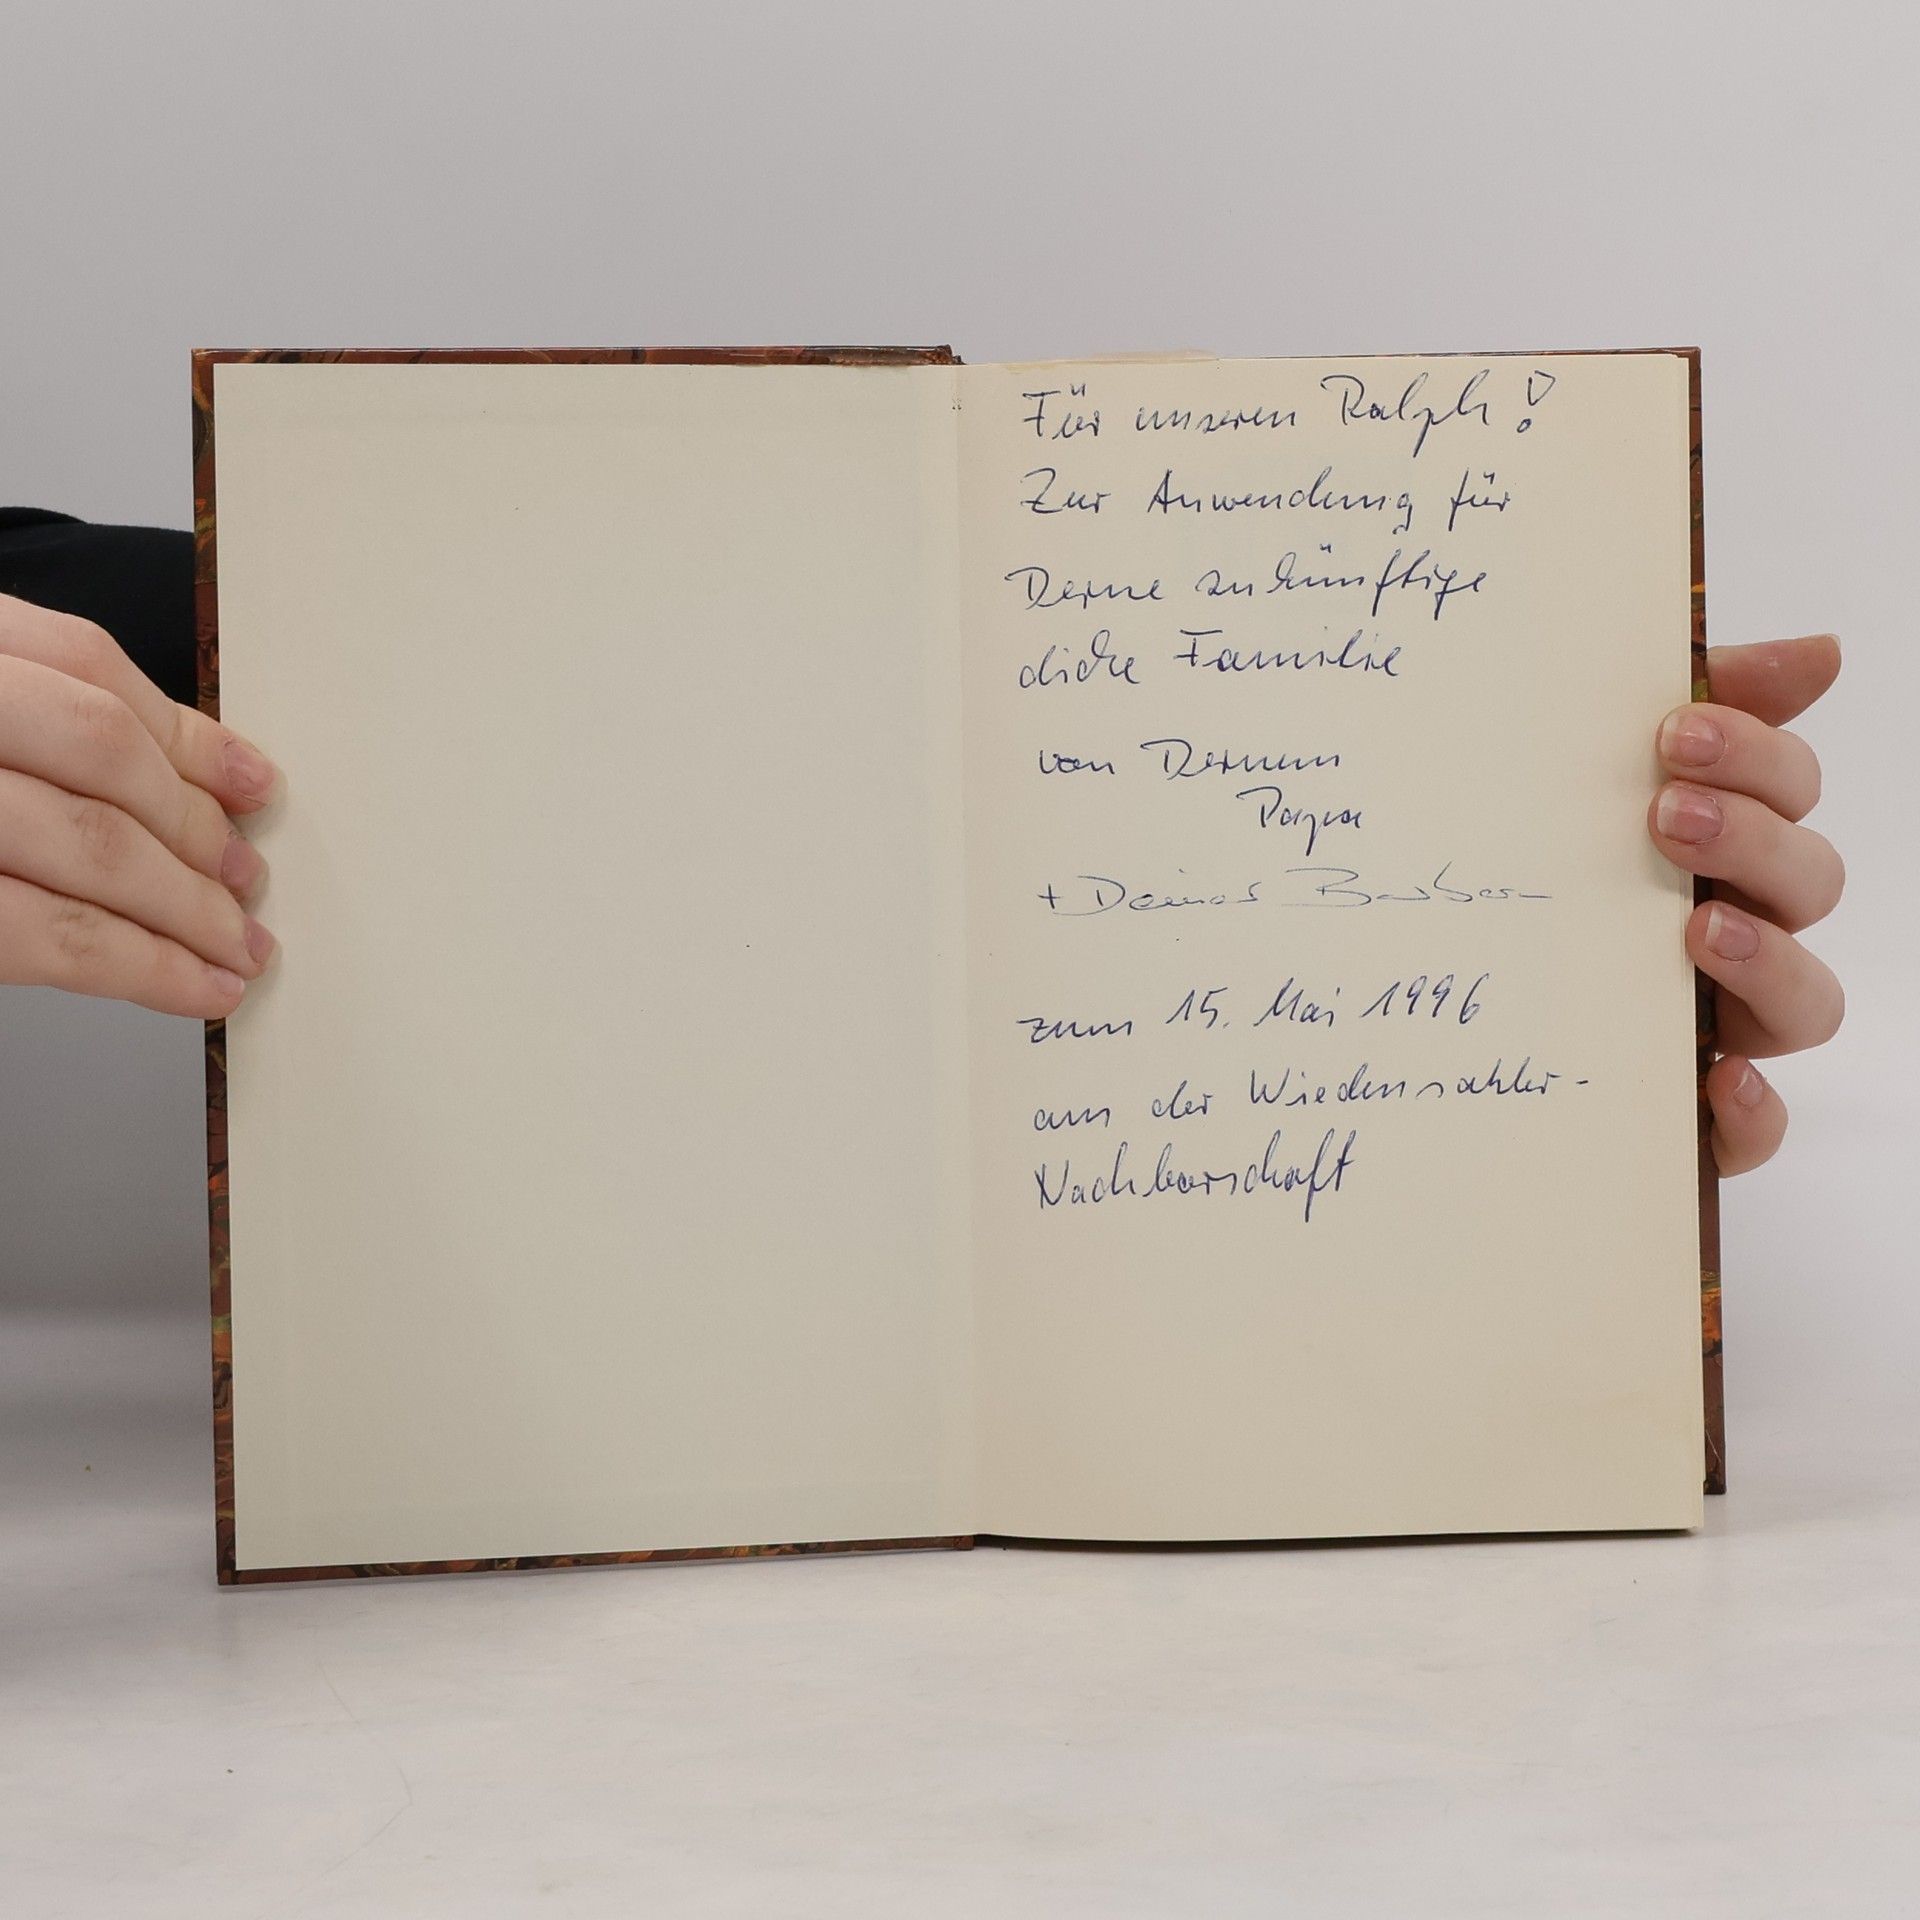 Für unseren Ralph!
Zur Anwendung für
Deine zukünftige
dicke Familie
von Deinem
Papa
+ Deiner Barbara
zum 15. Mai 1996
aus der Wiedensahler-
Nachbarschaft